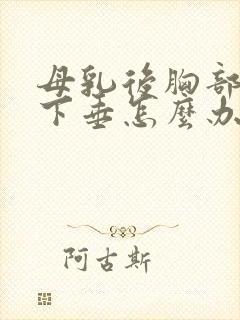 母乳後胸部
下垂怎麼办
阿古斯